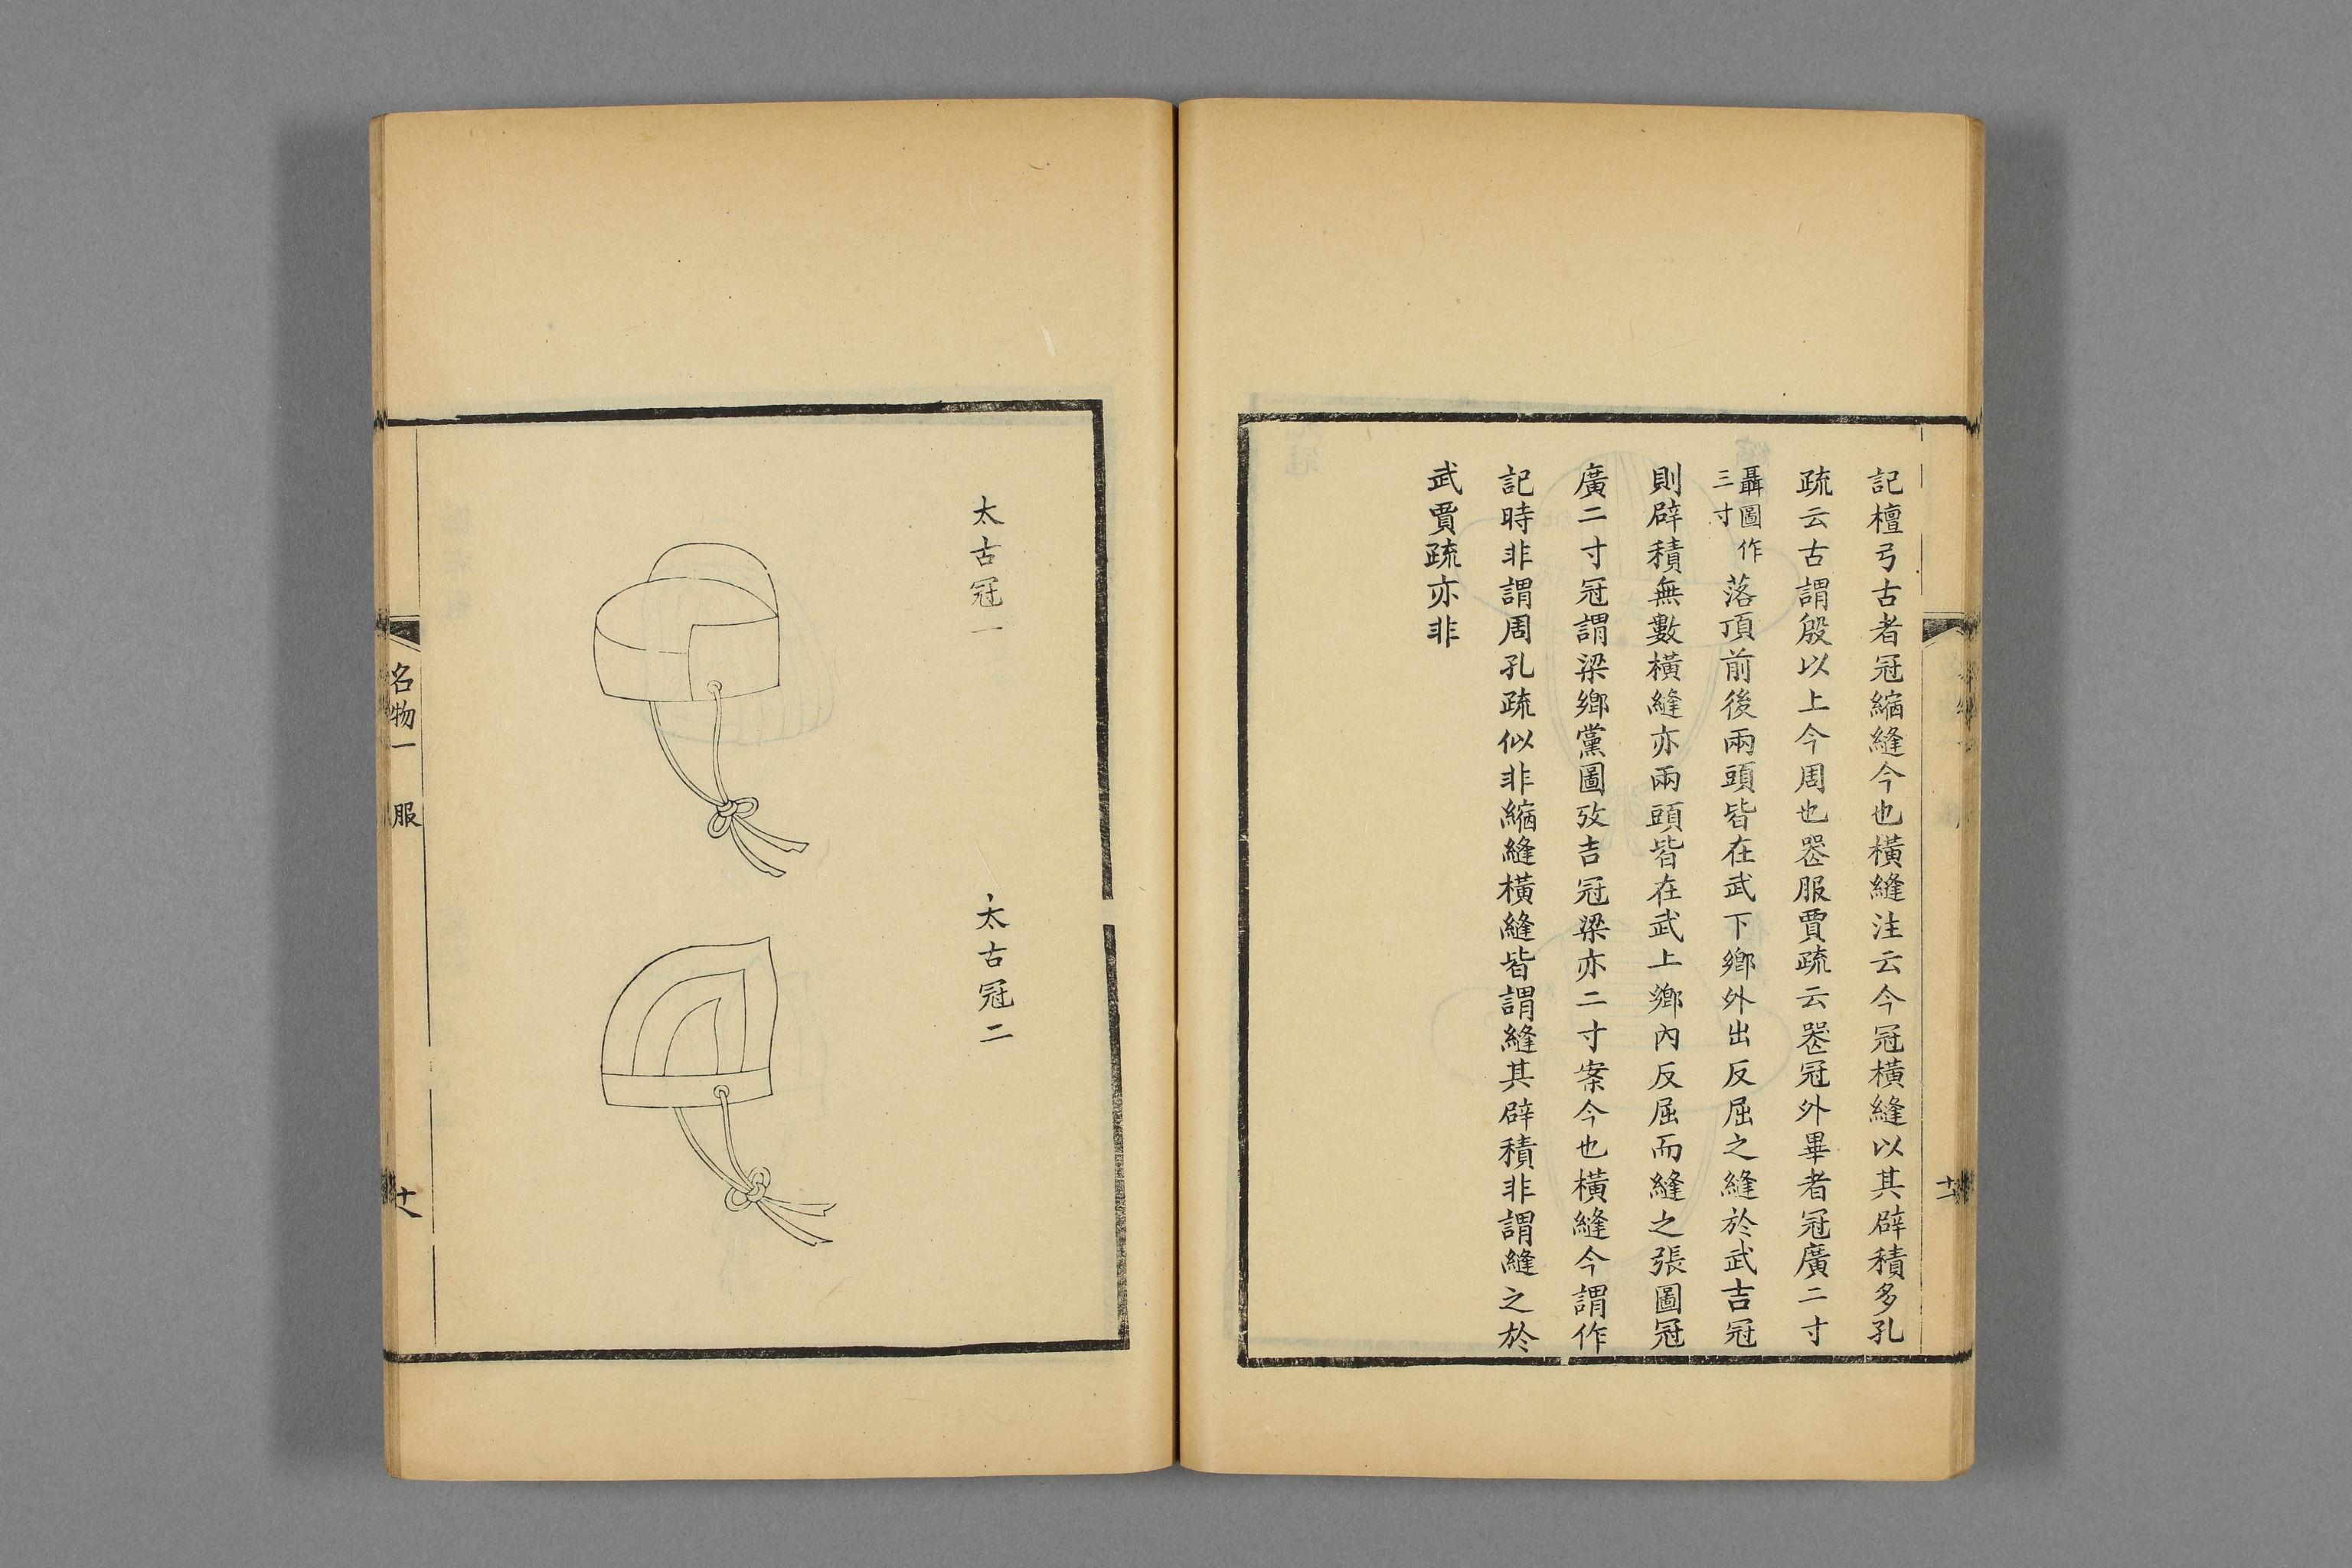 記檀弓古者冠縮縫今也橫縫注云今冠橫縫以其辟積多孔
疏云古謂殷以上今周也喪服賈疏云喪冠外畢者冠廣二寸
聶圖作
三寸
落頂前後兩頭皆在武下鄉外出反屈之縫於武吉冠
則辟積無數橫縫亦兩頭皆在武上鄉內反屈而縫之張圖冠
廣二寸冠謂梁鄉黨圖攷吉冠梁亦二寸案今也橫縫今謂作
記時非謂周孔疏似非縮縫橫縫皆謂縫其辟積非謂縫之於
武賈疏亦非
太古冠一
太古冠二
名物一 服
十八